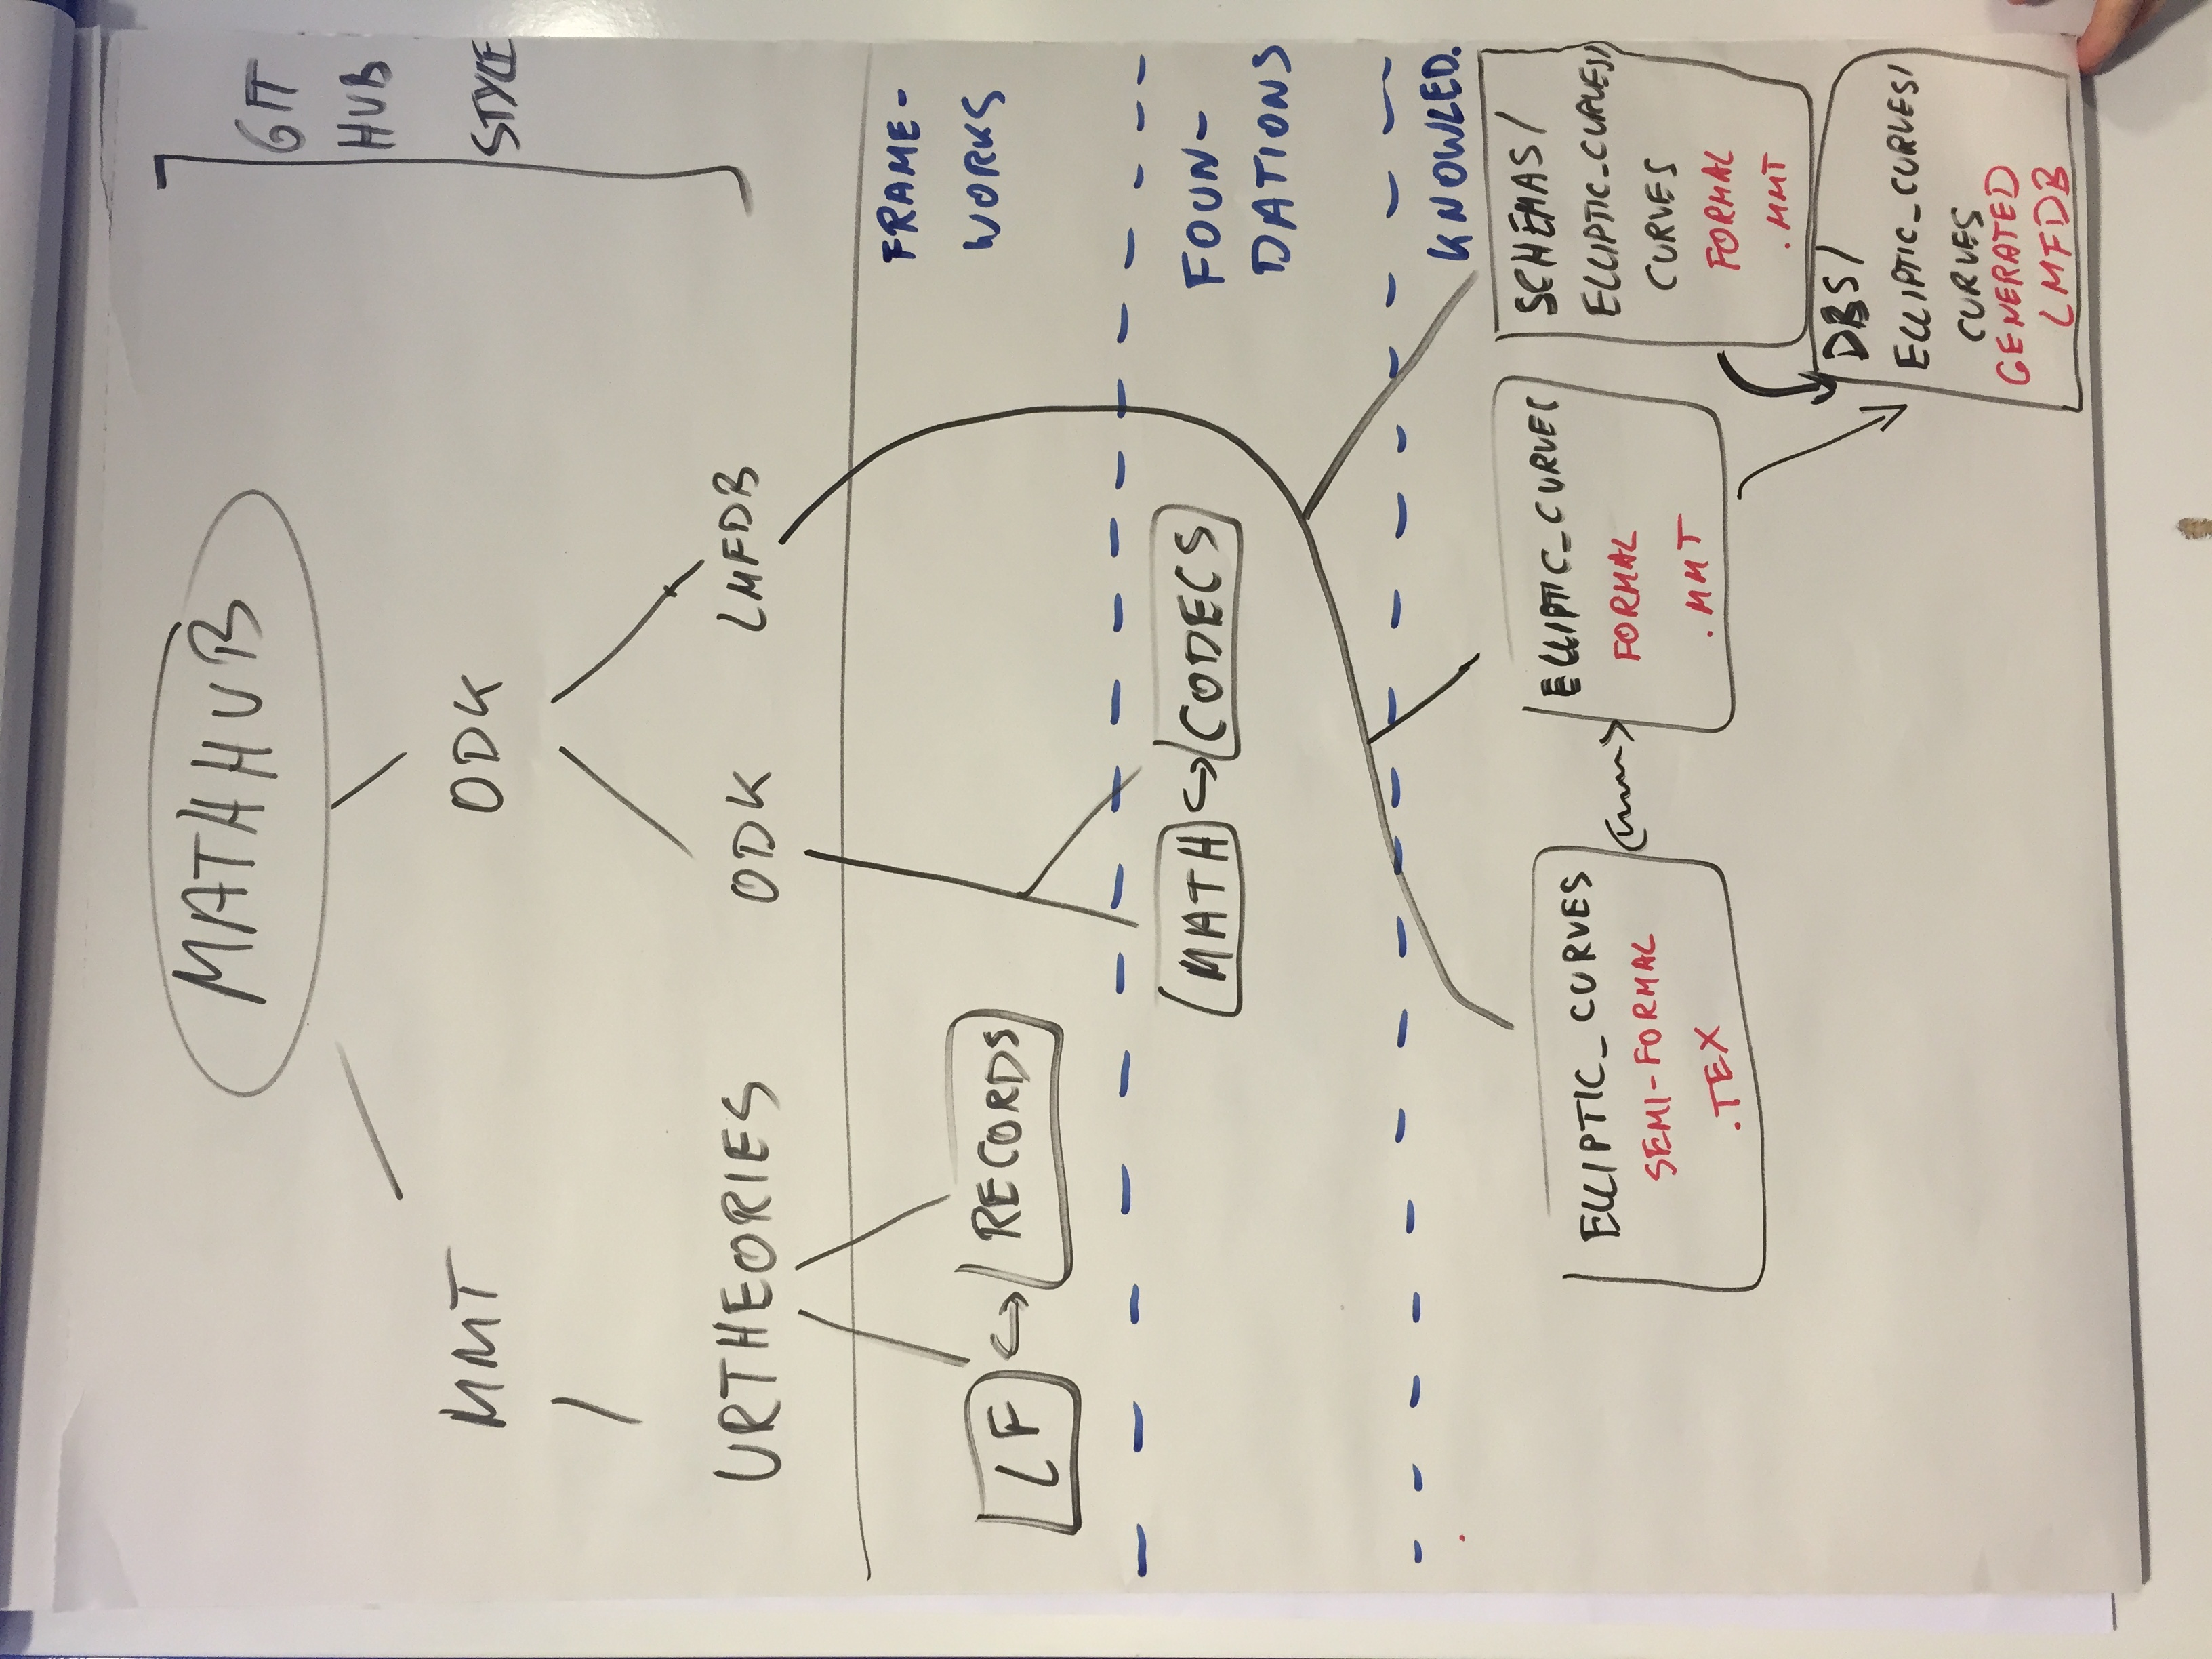 MATHHUB
GIT
HUB
STYLE
MMT
ODK
URTHEORIES
ODK
LMFDB
FRAME-
WORKS
LF
RECORDS
FOUN-
DATIONS
MATH
CODECS
KNOWLED.
ELLIPTIC_CURVES
SEMI-FORMAL
.TEX
ELLIPTIC_CURVES
FORMAL
.MMT
SCHEMAS/
ELLIPTIC_CURVES/
CURVES
FORMAL
.MMT
DBS/
ELLIPTIC_CURVES/
CURVES
GENERATED
LMFDB